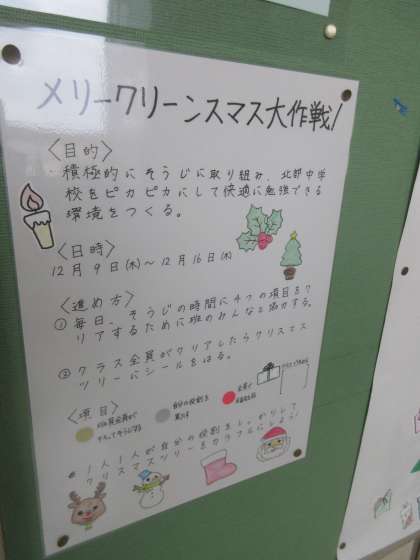 メリークリーンスマス大作戦!
〈目的〉
積極的にそうじに取り組み、北部中学
校をピカピカにして快適に勉強できる
環境をつくる。
〈日時〉
12月9日(木)~12月16日(木)
〈進め方〉
① 毎日、そうじの時間に4つの項目をク
リアするために班のみんなと協力する。
② クラス全員がクリアしたらクリスマス
ツリーにシールをはる。
〈項目〉
自分の役割を
1人1人が自分の役割をしっかりして
クリスマスツリーをカラフルにしよう!